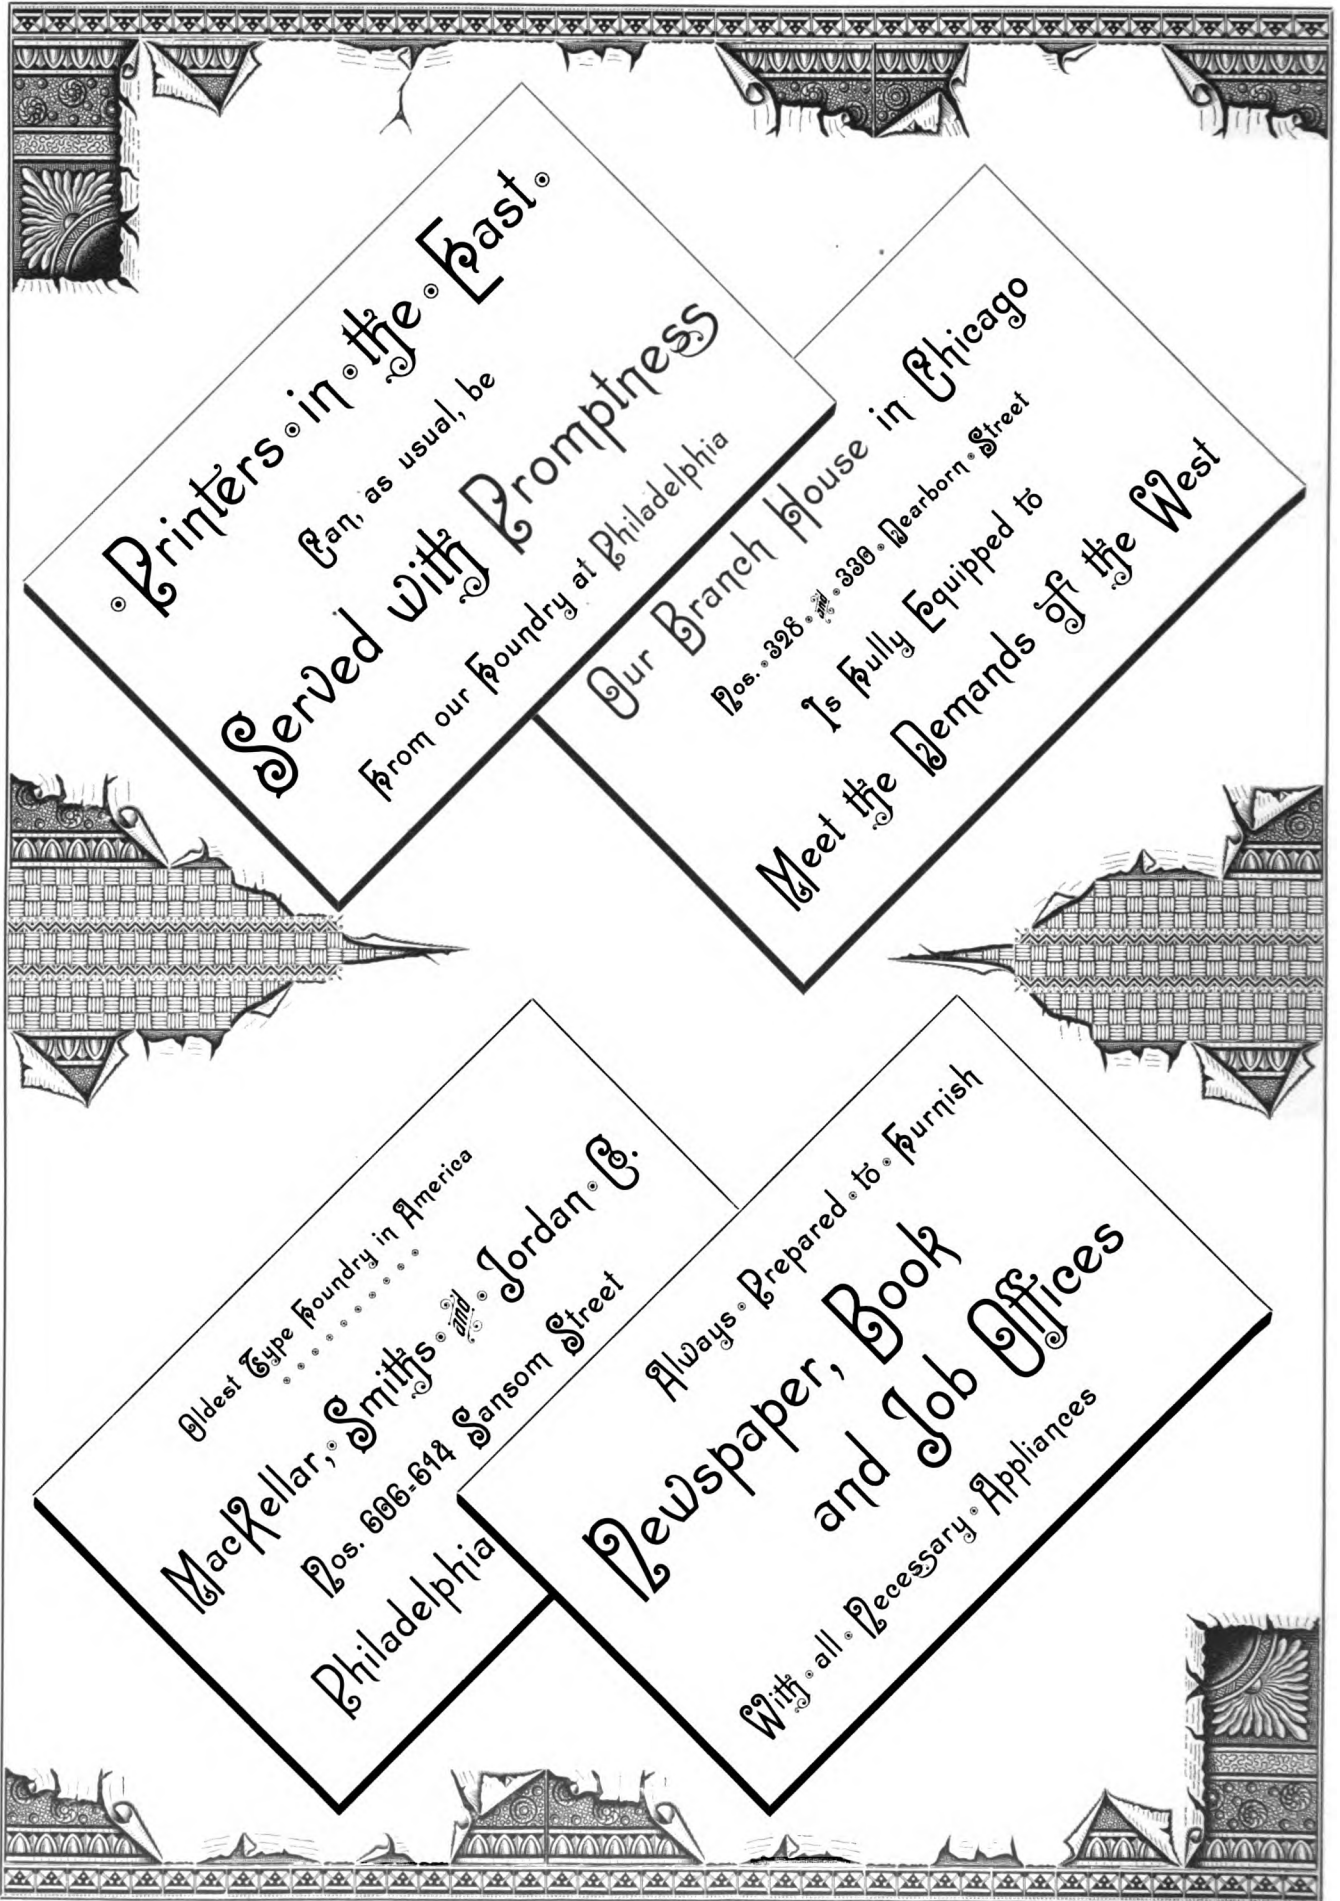 Printers in the East
Can, as usual, be
Served with Promptness
From our Foundry at Philadelphia
Our Branch House in Chicago
Nos. 328 and 330 Dearborn Street
Is Fully Equipped to
Meet the Demands of the West
Oldest Type Foundry in America
MacKellar, Smiths and Jordan Co.
Nos. 606=614 Sansom Street
Philadelphia
Always Prepared to Furnish
Newspaper, Book
and Job Offices
With all Necessary Appliances